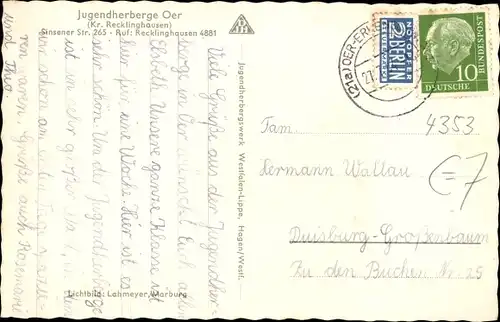 Jugendherberge Oer
(Kr. Recklinghausen)
Sinsener Str. 265 - Ruf: Recklinghausen 4881
Viele Grüße aus der Jugendher-
berge in Oer wünscht Euch allen
Elsbeth. Unsere ganze Klasse ist
hier für eine Woche. Hier ist es
sehr schön. Um der Jugendherberge
ist ein sehr großer
wir schon am
von Eurer Grüße auch Rosemarie
Lichtbild: Lahmeyer, Marburg
Jugendherbergswerk Westfalen-Lippe, Hagen/Westf.
(21a) OER-ER
27
NOTOPFER
2 BERLIN
STEUERMARKE
DEUTSCHE
BUNDESPOST
10
Fam.
4353
Hermann Waltau
€ 7
Duisburg-Großenbaum
Zu den Buchen Nr. 25